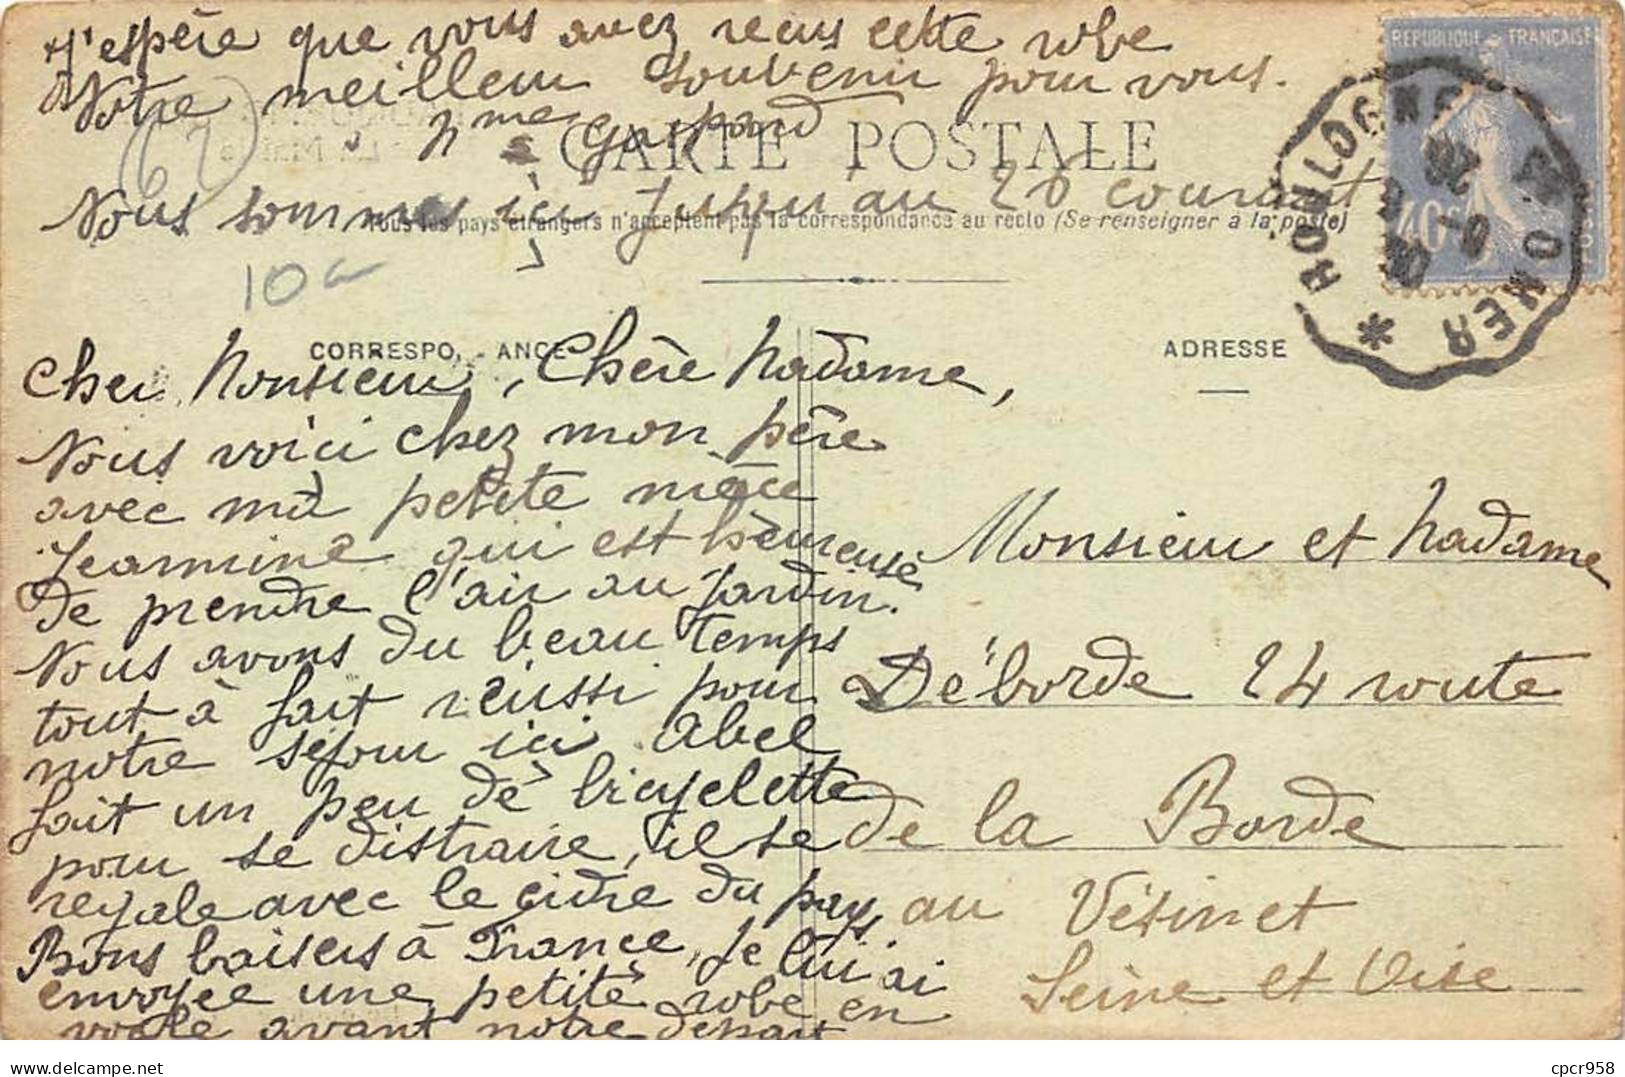 J'espère que vous avez reçus cette robe
Notre meilleur souvenir pour vous.
Mme Gaspard
CARTE POSTALE
Nous sommes içi jusqu'au 20 courant
Tous les pays étrangers n'acceptent pas la correspondance au recto (Se renseigner à la poste)
62
10
REPUBLIQUE FRANÇAISE
40c
BOULOGNE
OMER *
CORRESPONDANCE
ADRESSE
Cher Monsieur, Chère Madame,
Nous voici chez mon père
avec ma petite nièce
Jeannine qui est heureuse
de prendre l'air au jardin.
Nous avons du beau temps
tout à fait réussi pour
notre séjour ici Abel
fait un peu de bicyclette
pour se distraire, il se
regale avec le cidre du pays.
Bons baisers à France, je lui ai
envoyée une petite robe en
voile avant notre départ
Monsieur et Madame
Déborde 24 route
de la Borde
au Vésinet
Seine et Oise
cpcr958